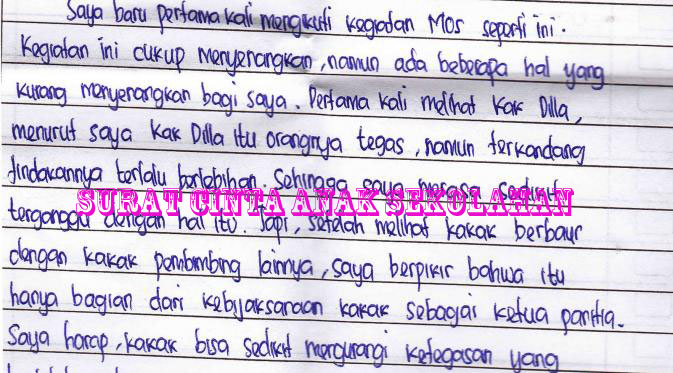 Saya baru pertama kali mengikuti kegiatan MOS seperti ini.
Kegiatan ini cukup menyenangkan, namun ada beberapa hal yang
kurang menyenangkan bagi saya. Pertama kali melihat Kak Dilla,
menurut saya Kak Dilla itu orangnya tegas, namun terkandang
tindakannya terlalu berlebihan. Sehingga saya merasa sedikit
SURAT CINTA ANAK SEKOLAHAN
terganggu dengan hal itu. Tapi, setelah melihat kakak berbaur
dengan kakak pembimbing lainnya, saya berpikir bahwa itu
hanya bagian dari kebijaksanaan kakak sebagai ketua panitia.
Saya harap, kakak bisa sedikit mengurangi ketegasan yang